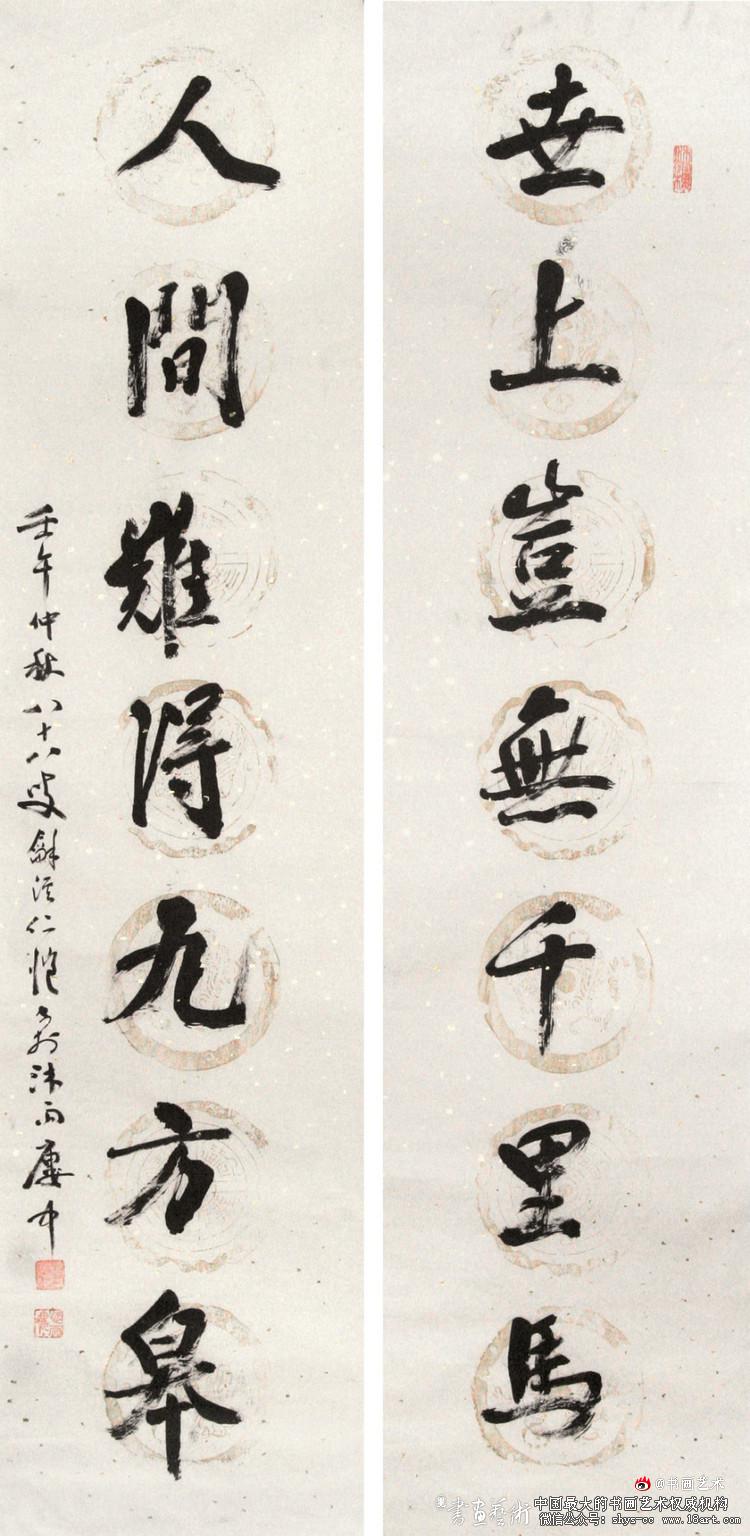 世上豈無千里馬
人間難得九方皋
壬午仲秋八十八叟龢溪仁愷書於沐雨廔中
@书画艺术
書畫藝術 中国最大的书画艺术权威机构
微信公众号: shys-cc www.18art.com